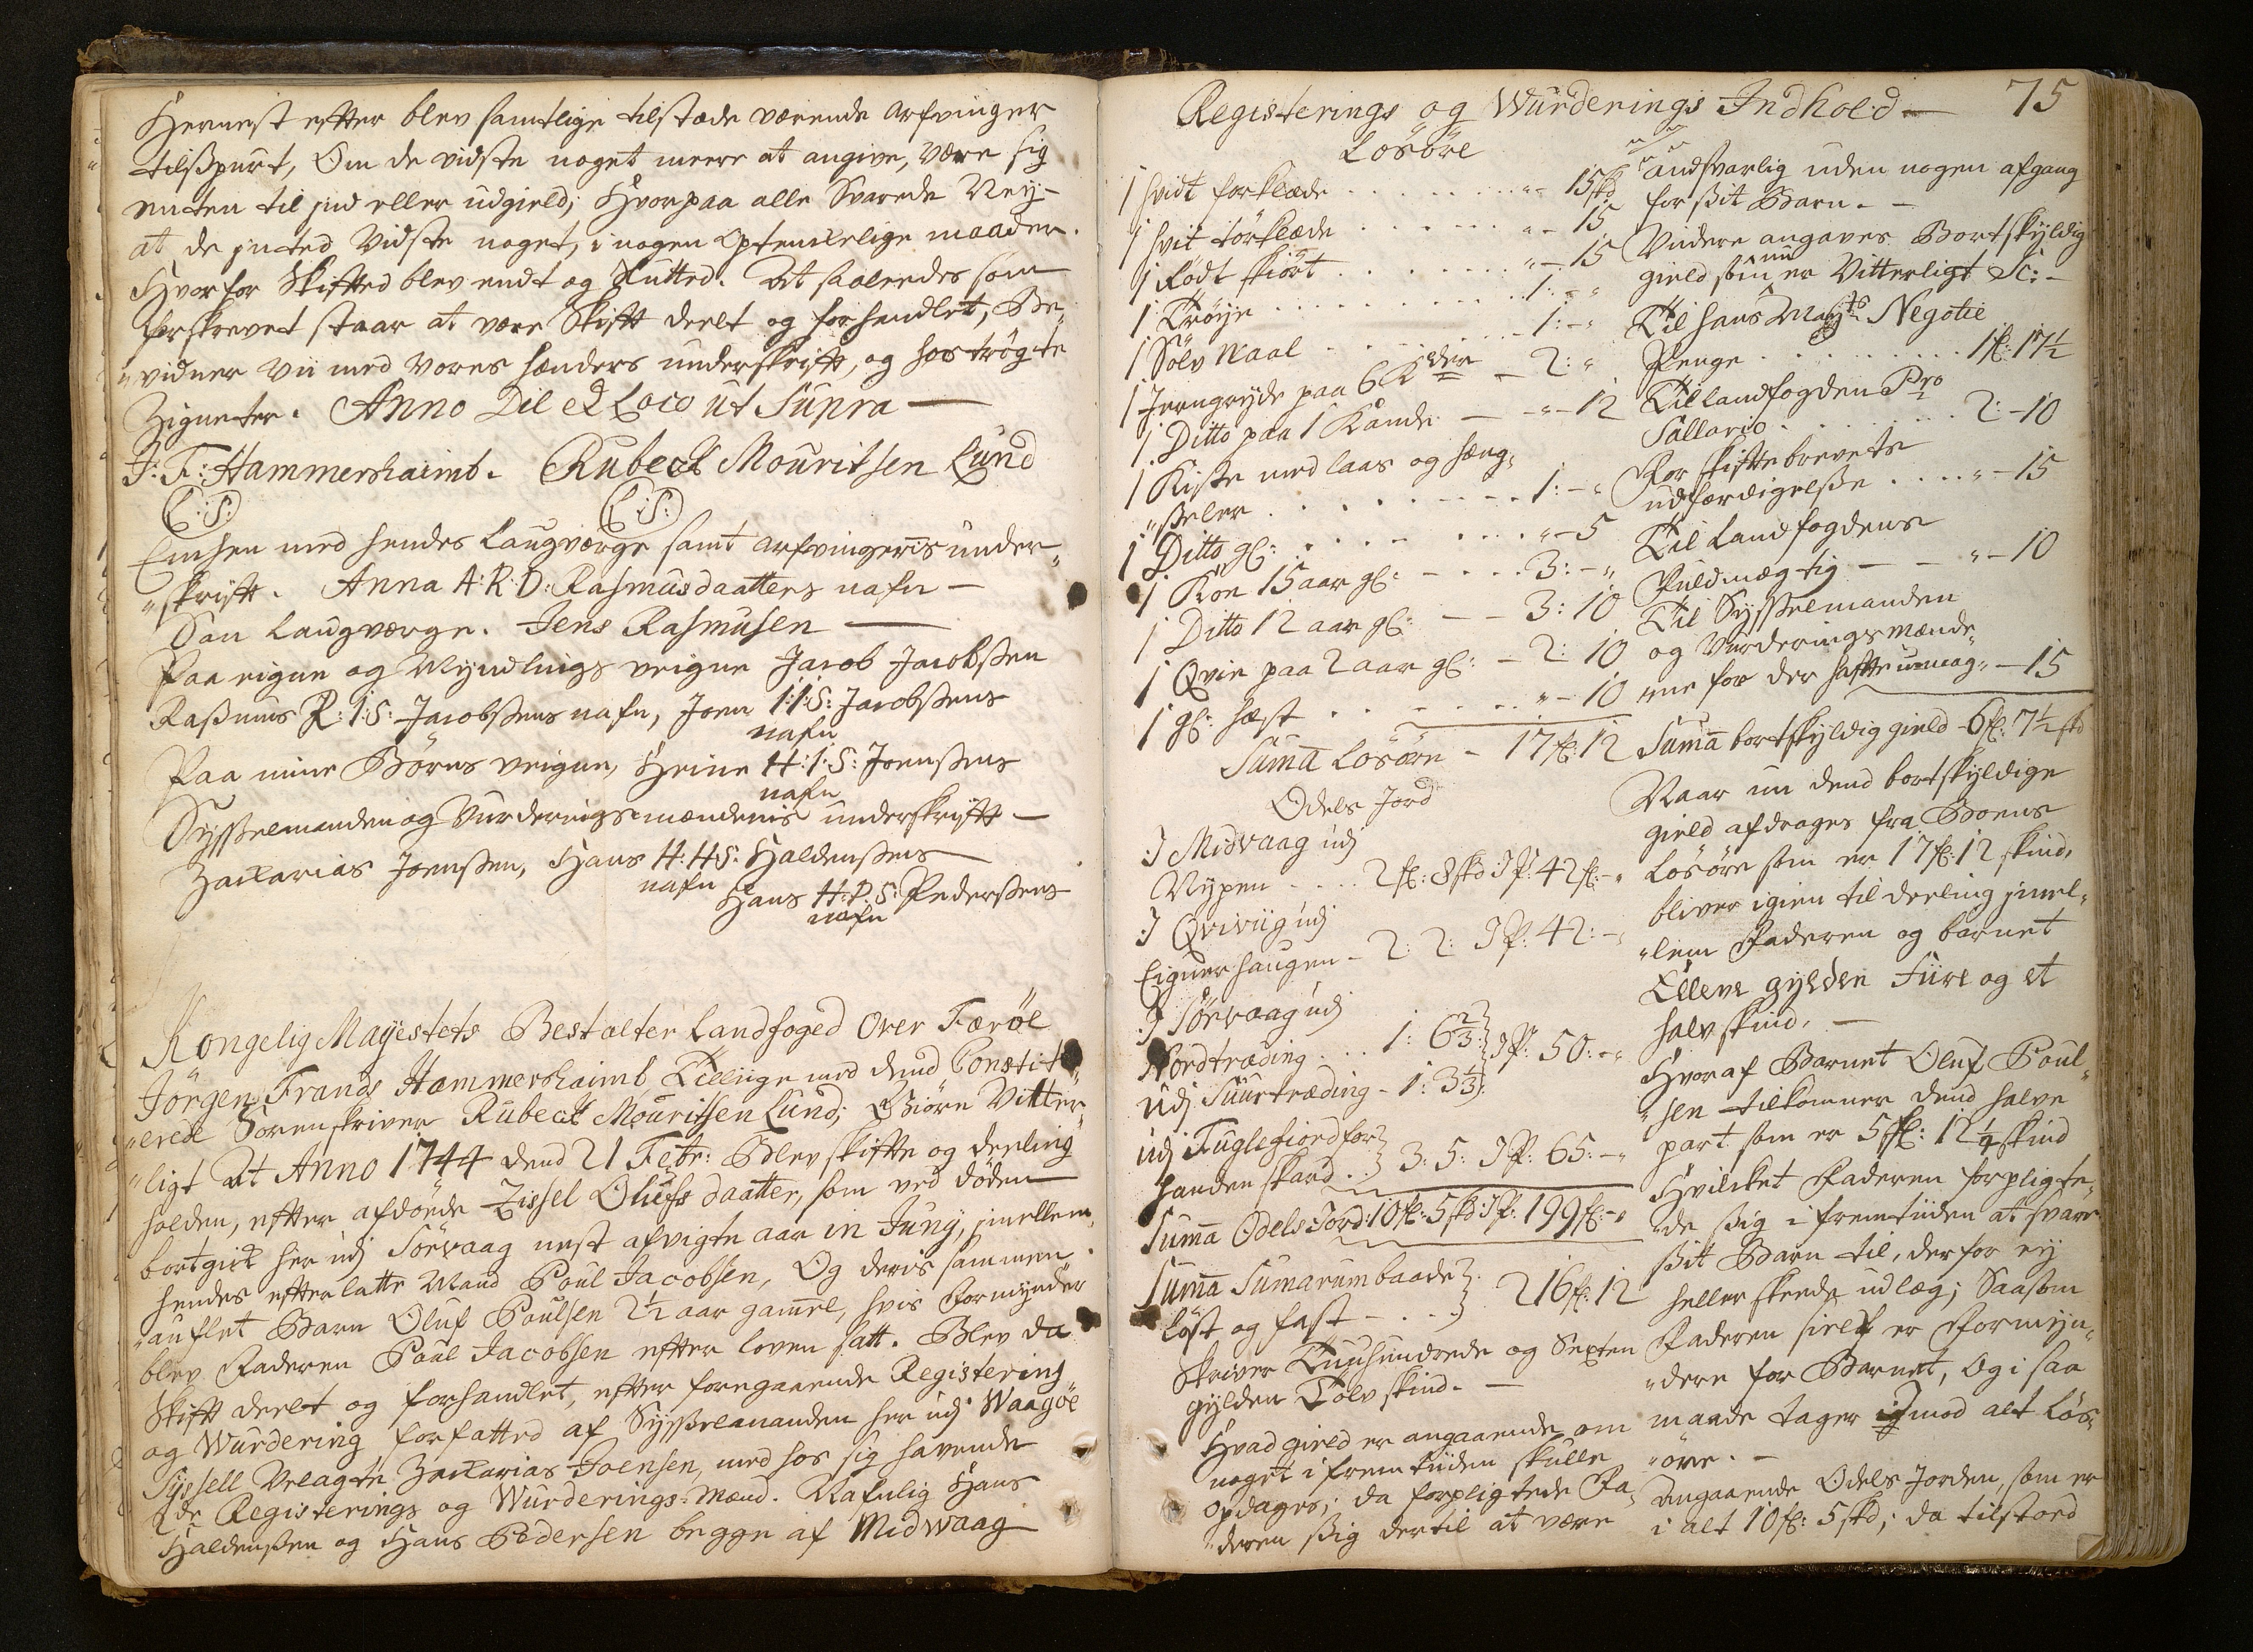 Hernest efter blev samtlige tilstæde værende arfvinger
tilspurt, Om de vidste noget meere at angive, være sig
enten til ind eller udgield; Hvorpaa alle Svarede Neÿ-
at de inted Vidste noget, i nogen optenckelige maader.
Hvorfor Skifted blev endt og Slutted. At saaledes som
forskrevet staar at være Skift deelt og forhandlet, Be„
„vidner vii med vores hænders underskrift, og hoströgte
Zigneter. Anno Die et Loco ut Supra —
J: F: Hammershaimb. Rubech Mouritsen Lund
(L:S:) (L:S:)
Encken med hendes Laugværge samt arfvingernis under„
„skrift. Anna A:R:D: Rasmusdaatters nafn —
Som Laugværge. Jens Rasmusen —
Paa eigne og Myndlings veigne Jacob Jacobssen
Rassmus R:I:S: Jacobssens nafn, Joen I:I:S: Jacobssens
nafn
Paa mine Börns veigne, Heine H:I:S: Joenssens
nafn
Sysselmanden og Vurderingsmændenis underskrift —
Zacharias Joenssen, Hans H:H:S: Haldenssens
nafn
Hans H:P:S: Pederssens
nafn
Kongelig Mayestets Bestalter Landfoged Over Færöe
Jörgen Frands Hammershaimb Tilliige med dend Constitu„
„erede Sorenskriver Rubech Mouritsen Lund; Giöre Vitter„
„ligt At Anno 1744 dend 21 Febr: Blev skifte og deeling
holden, efter afdöede Zissel Olufs daatter, som ved döden
bortgick her udj Sörvaag nest afvigte aar in Junÿ, imellem
hendes efterlatte Mand Poul Jacobsen, Og deris sammen
„auflet Barn Oluf Poulsen 2½ aar gamel, hvis Formynder
blev Faderen Poul Jacobsen efter loven satt. Blev da
Skift deelt og forhandlet, efter foregaaende Registering
og Wurdering forfatted af Sysselmanden her udj Waagöe
Syssell Velagte Zacharias Joensen, med hos sig havende
2de Registerings og Wurderings-Mænd. Nafnlig Hans
Haldenssen og Hans Pedersen begge af Midwaag
75
Registerings og Wurderings Indhold —
Losöre
1 hvidt forklæde . . . . „- 15 skd
1 hvit törklæde . . . . „- 15
1 Rödt skiört . . . . „- 15
1 Tröye . . . . 1:-„
1 Sölv Maal . . . . 1:-„
1 Jerngryde paa 6 K der — 2:„
1 Ditto paa 1 Kande — „- 12
1 Kiste med laas og hæng„
„sseler . . . . 1:-„
1 Ditto gl: . . . . „- 5
1 Koe 15 aar gl: . . . 3:-„
1 Ditto 12 aar gl: — 3: 10
1 Qvie paa 2 aar gl: — 2: 10
1 gl: hæst . . . . „- 10
Suma Losöre - 17 fl: 12
Odels Jord
J Midvaag udj
Nypen . . . 2 fl: 8 skd J P: 42 fl:-„
J Qviviig udj
Eignerhaugen - 2: 2: J P: 42:-„
J Sörvaag udj
Nordtræding . . . 1: 6⅔:
udj Suurtræding - 1: 3⅓: J P: 50:-„
udj Fuglefiord for
handenskard . . 3: 5: J P: 65:-„
Suma Odels Jord: 10 fl: 5 skd J P: 199 fl:-„
Suma Sumarum baade
löst og fast - . . 216 fl: 12
Skriver Tuuhundrede og Sexten
gylden Tolv skind. —
Hvad gield er angaaende om
noget i fremtiiden skulle
opdages; da forpligtede Fa„
„deren ssig dertil at være
andsvarlig uden nogen afgang
for ssit Barn. —
Viidere angaves Bortskyldig
gield som nu er Vitterligt Sc: —
Til hans Mayts Negotie
Penge . . . . 1 fl: 17½
Til landfogden Pro
Sallario . . . . 2:-10
For skiftebrevets
udfærdigelsse . . . . „- 15
Til Landfogdens
Fuldmægtig — — „- 10
Til Sysselmanden
og Vurderingsmænde„
„ne for der hafte umag „- 15
Suma bortskyldig gield - 6 fl: 7½ skd
Naar nu dend bortskyldige
gield afdrages fra Boens
Losöre som er 17 fl: 12 skind,
bliver igien til deeling imel„
„lem Faderen og barnet
Elleve gylden Fiire og et
halv skind. —
Hvoraf Barnet Oluf Poul„
„sen tilkommer dend halve
part som er 5 fl: 12¼ skind
Hvilcket Faderen forpligte„
„de ssig i fremtiiden at svare
ssit Barn til, derfor ey
heller skeede udlæg; Saasom
Faderen sielf er Formyn„
„dere for Barnet, Og i saa
maade tager imod alt Lös„
„öre. —
Angaaende Odels Jorden, som er
i alt 10 fl: 5 skd; da tilstoed